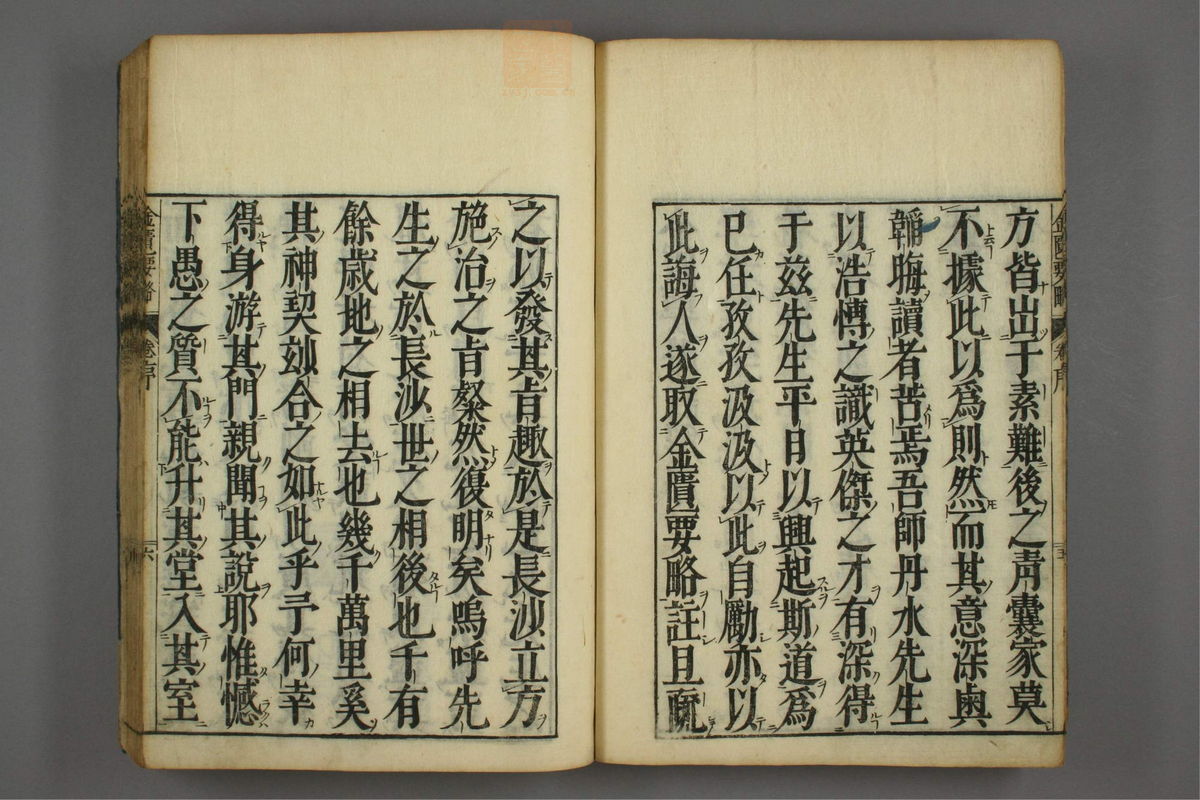 方皆出于素難後之靑囊家莫
不據此以爲則然而其意深奥
韞晦讀者苦焉吾師丹水先生
以浩愽之識英傑之才有深得
于兹先生平日以興起斯道爲
已任孜孜汲汲以此自勵亦以
此誨人遂取金匱要略註且疏
之以發其㫖趣於是長沙立方
施治之㫖粲然復明矣嗚呼先
生之於長沙世之相後也千有
餘歳地之相去也幾千萬里奚
其神契玅合之如此乎予何幸
得身游其門親聞其說耶惟憾
下愚之質不能升其堂入其室
金匱要略
卷序
六